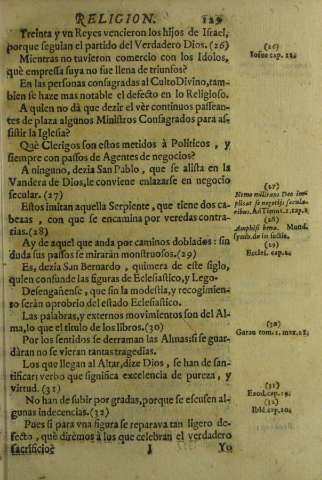 RELIGION. 129
Treinta y vn Reyes vencieron los hijos de Israel,
porque seguian el partido del Verdadero Dios. (26)
(26)
Iosue cap. 12.
Mientras no tuvieron comercio con los Idolos,
què empressa suya no fue llena de triunfos?
En las personas consagradas al Culto Divino, tam-
bien se haze mas notable el defecto en lo Religioso.
A quien no dà que dezir el vèr continuos passean-
tes de plaza algunos Ministros Consagrados para as-
sistir la Iglesia?
Què Clerigos son estos metidos à Politicos, y
siempre con passos de Agentes de negocios?
A ninguno, dezia San Pablo, que se alista en la
Vandera de Dios, le conviene enlazarse en negocio
secular. (27)
(27)
Nemo militans Deo im-
plicat se negotijs secula-
ribus. Ad Timot. 2. cap. 2
Estos imitan aquella Serpiente, que tiene dos ca-
bezas, con que se encamina por veredas contra-
rias. (28)
(28)
Amphisi bena. Mund.
symb. de in ficilia.
Ay de aquel que anda por caminos doblados: sin
duda sus passos se miraràn monstruosos. (29)
(29)
Eccles. cap. 2.
Es, dezia San Bernardo, quimera de este siglo,
quien confunde las figuras de Eclesiastico, y Lego.
Desengañense, que sin la modestia, y recogimien-
to seràn oprobrio del estado Eclesiastico.
Las palabras, y externos movimientos son del Al-
ma, lo que el titulo de los libros. (30)
(30)
Garau tom. 1. max. 28.
Por los sentidos se derraman las Almas: si se guar-
dàran no se vieran tantas tragedias.
Los que llegan al Altar, dize Dios, se han de san-
tificar: verbo que significa excelencia de pureza, y
virtud. (31)
(31)
Exod. cap. 19.
No han de subir por gradas, porque se escusen al-
gunas indecencias. (32)
(32)
Ibid. cap. 20.
Pues si para vna figura se reparava tan ligero de-
fecto, què dirèmos à los que celebran el verdadero
sacrificio?
I Yo